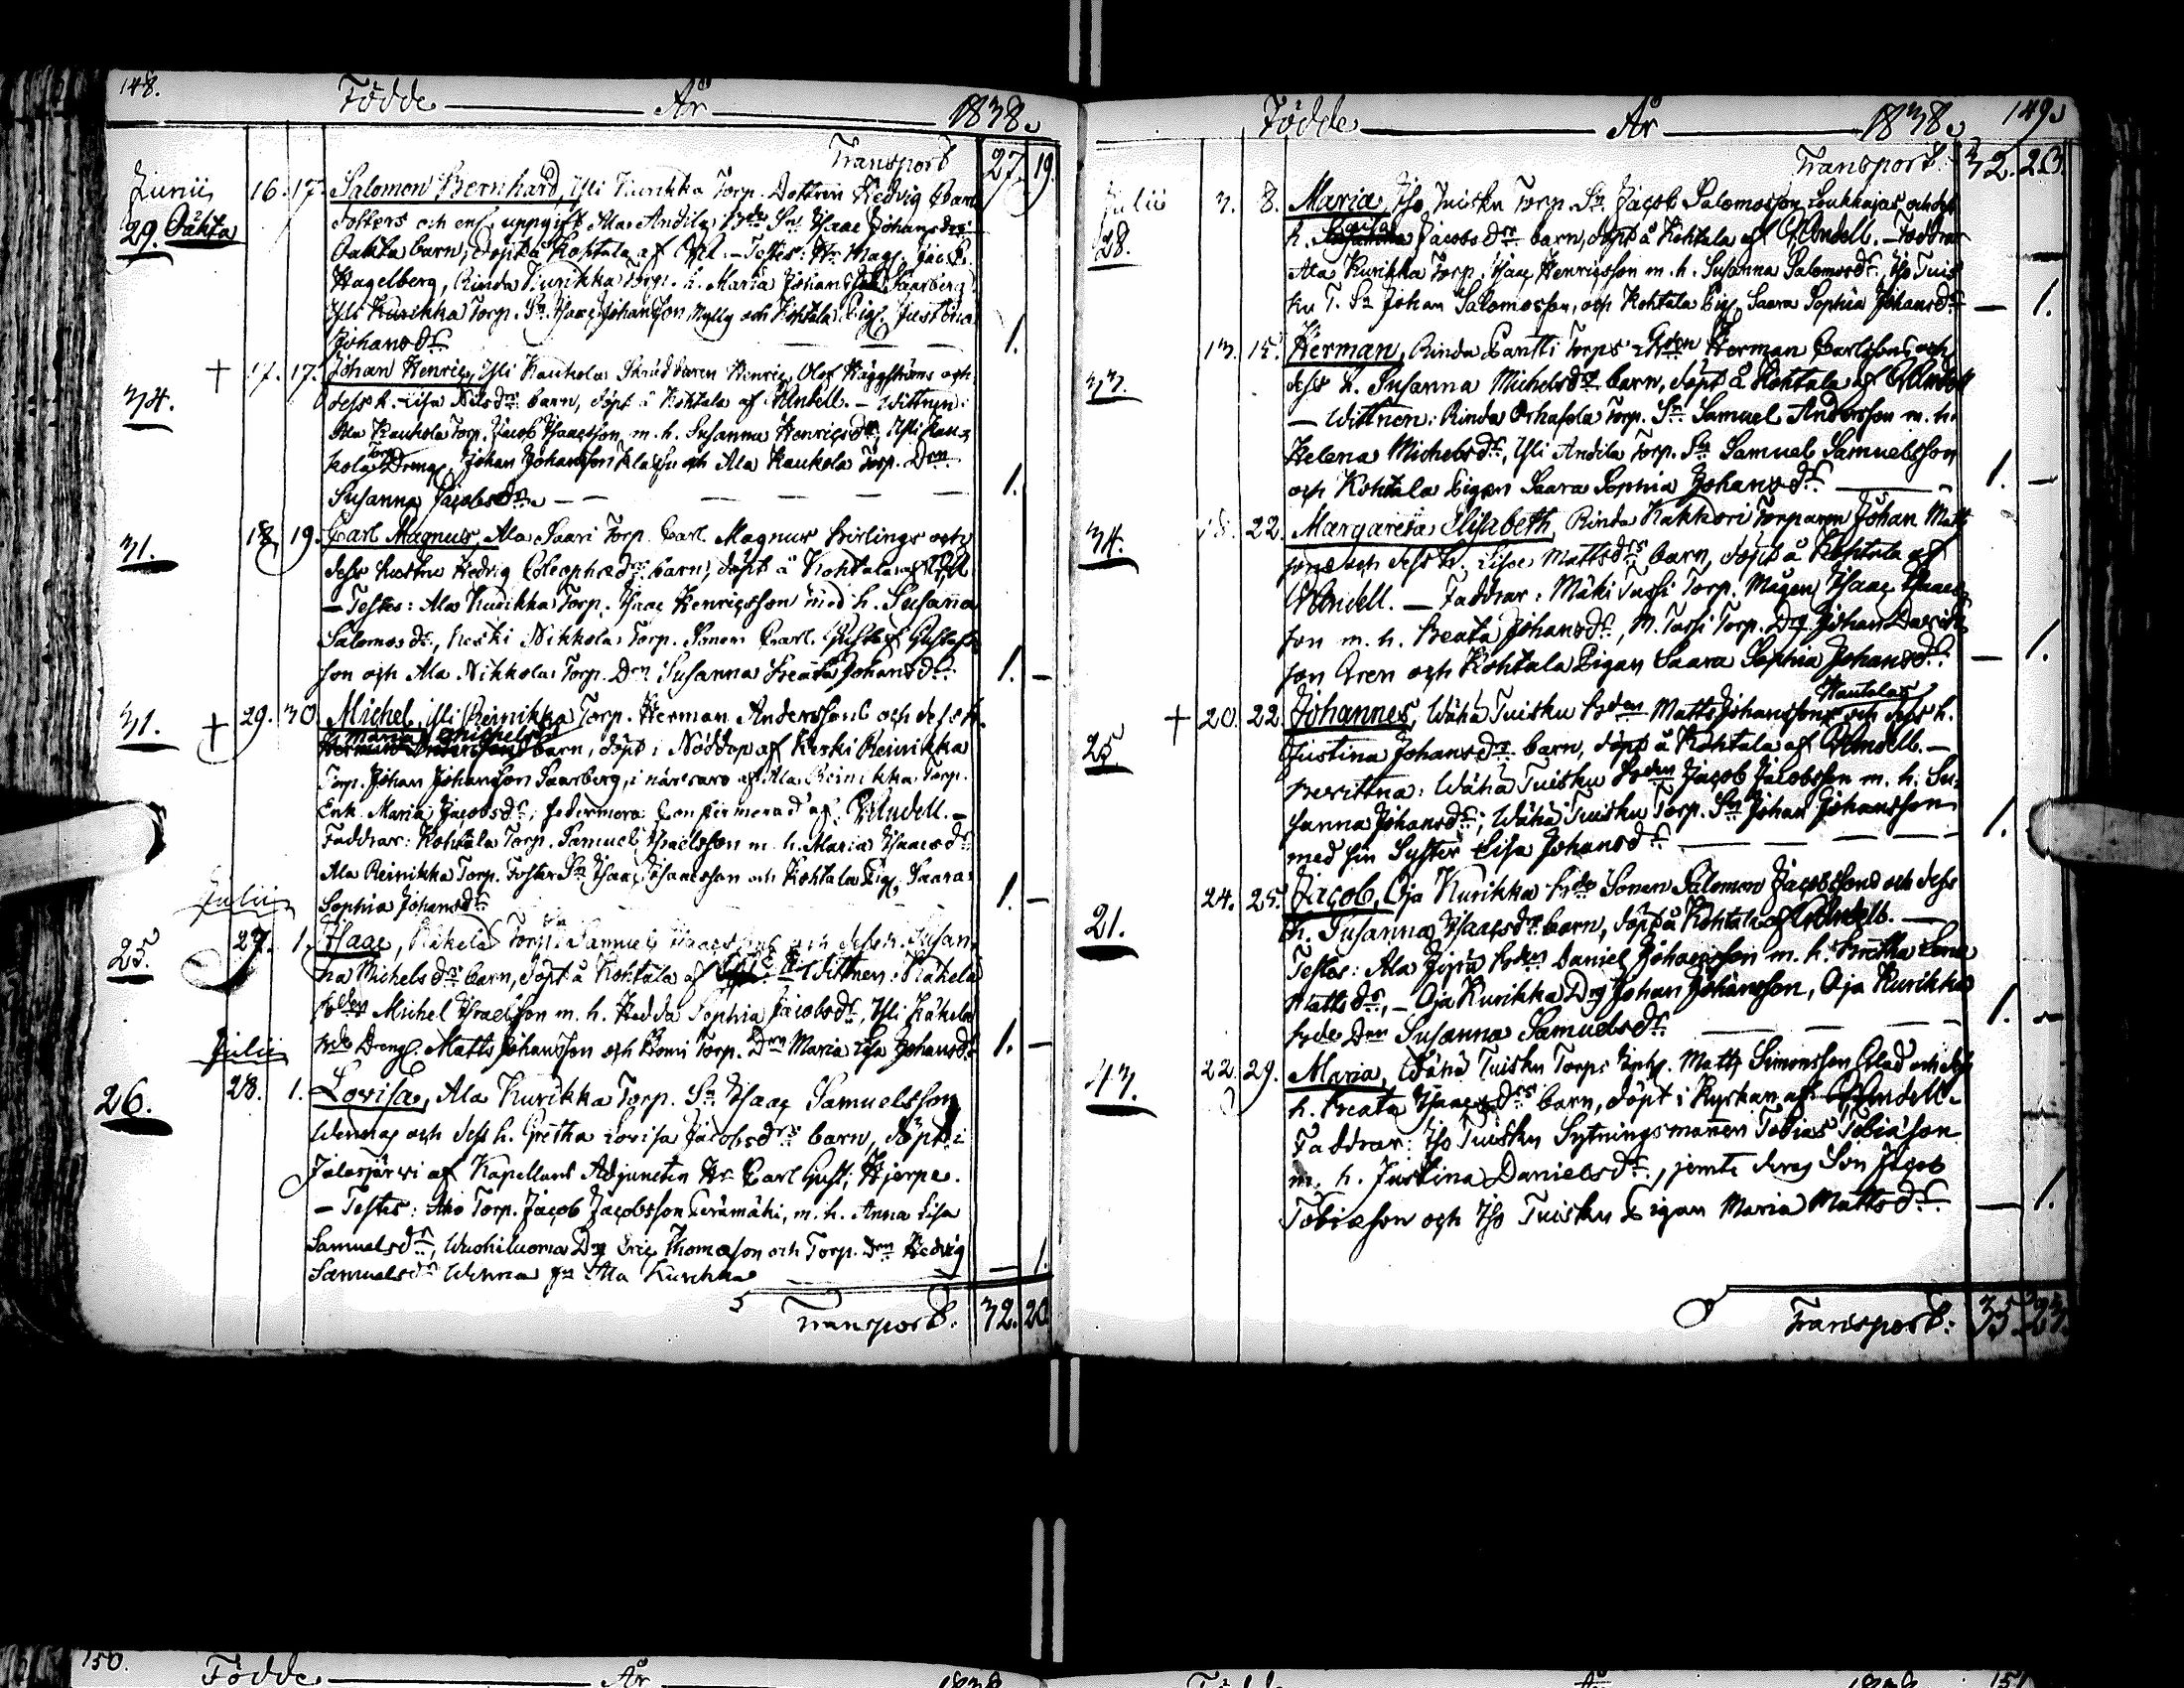 148.
Födde År 1838.
Transport 27. 19.
Junii 16. 17. Salomon Bernhard, Yli Kurikka Torp. Dottren Hedvig Carls
29. Oäkta dotters och enl. uppgift Ala Andila Isaac Johanss
Oäkta barn, döpt å Kohtala af - Testes: Hr Mag. Jac.
Hagelberg, Rinda Kurikka Torp. h. Maria Johans Saarberg
Yli Kurikka Torp. Sn. Isaac Johansson Mylly och Kohtala Pig. Justina
Johansdr. 1.
+ 17. 17. Johan Henric, Yli Kaukola Skräddaren Henric Olof Häggströms och
34. dess h. Lisa Nilsdrs barn, döpt å Kohtala af Andell. - Wittnen:
Ala Kaukola Torp. Jacob Isaacsson m. h. Susanna Henricsdr, Yli Kau-
kola Torp Dreng. Johan Johansson och Ala Kaukola Torp. Drn.
Susanna Jacobsdr. 1.
18. 19. Carl Magnus, Ala Saari Torp. Carl Magnus och
31. dess hustru Hedvig barn, döpt å Kohtala af
- Testes: Ala Kurikka Torp. Isaac Henricsson med h. Susanna
Salomosdr., Keski Nikkola Torp. Sonen Carl Gustaf Gustafs-
son och Ala Nikkola Torp. Drn Susanna Beata Johansdr. 1. -
+ 29. 30. Michel, Yli Reinikka Torp. Herman Anderssons och dess h.
31. Maria Michelsdrs barn, döpt i Nöddop af Keski Reinikka
Torp. Johan Johansson Saarberg, i närvaro af Ala Reinikka Torp.
Enk. Maria Jacobsdr, fadermora Confirmerad af Andell. -
Faddrar: Kohtala Torp. Samuel Israelsson m. h. Maria Isaacsdr.
Ala Reinikka Torp. Foster Sn. Isaac Isaacsson och Kohtala Pig. Saara
Julii Sophia Johansdr. 1. -
27. 1. Isaac, Käkelä Torp. Samuel Isaacssons och dess h. Susan-
25. na Michelsdrs barn, döpt å Kohtala af Wittnen: Käkelä
Michel Israelsson m. h. Hedda Sophia Jacobsdr, Yli Käkelä
Dreng. Matts Johansson och Torp. Drn Maria Lisa Johansdr 1. -
Julii
28. 1. Lovisa, Ala Kurikka Torp. Sn Isaac Samuelsson
26. och dess h. Gretha Lovisa Jacobsdrs barn, döpt i
Jalasjärwi af Kapellans Adjuncten Hr Carl Gust. Hjerpe.
- Testes: Aho Torp. Jacob Jacobsson m. h. Anna Lisa
Samuelsdr, Wuohiluoma Drg Eric Thomasson och Torp. Drn Hedvig
Samuelsdr fr Ala Kurikka - 1.
Transport. 32. 20.
149.
Födde År 1838.
Transport: 32. 20.
Julii 3. 8. Maria, Iso Tuisku Torp. Sn. Jacob Salomosson Loukkajas och dess
28. h. Caisa Jacobsdrs barn, döpt å Kohtala af Andell. - Faddrar
Ala Kurikka Torp. Isaac Henricsson m. h. Susanna Salomosdr, Iso Tuis-
ku T. Sn Johan Salomosson, och Kohtala Pig. Saara Sophia Johansdr - 1.
13. 15. Herman, Rinda Pantti Torps Herman Carlssons och
33. dess h. Susanna Michelsdrs barn, döpt å Kohtala af Andell
- Wittnen: Rinda Torp. Sn Samuel Andersson m. h.
Helena Michelsdr, Yli Andila Torp. Sn Samuel Samuelsson
och Kohtala Pigan Saara Sophia Johansdr. 1. -
18. 22. Margareta Elisabeth, Rinda Kakkori Torparen Johan Matts-
34. sons och dess h. Lisa Mattsdrs barn, döpt å Kohtala af
Andell. - Faddrar: Mäki Passi Torp. Mågen Isaac Isaacs-
son m. h. Beata Johansdr, M. Passi Torp. Drg. Johan Davids-
son Gren och Kohtala Pigan Saara Sophia Johansdr. - 1.
+ 20. 22. Johannes, Wäha Tuisku Matts Johanssons Hautala och dess h.
25. Justina Johansdrs barn, döpt å Kohtala af Andell. -
Bevittna: Wäha Tuisku Jacob Jacobsson m. h. Su-
sanna Johansdr; Wäha Tuisku Torp. Sn Johan Johansson
med sin Syster Lisa Johansdr. 1.
24. 25. Jacob, Oja Kurikka Sonen Salomon Jacobssons och dess
21. h. Susanna Isaacsdrs barn, döpt å Kohtala af Andell. -
Testes: Ala Jyrä Daniel Johansson m. h. Bretha Lena
Mattsdr, - Oja Kurikka Drg Johan Johansson, Oja Kurikka
Drn Susanna Samuelsdr. 1. -
22. 29. Maria, Wäha Tuisku Torps Matts Simonsson Glad och dess
43. h. Beata Isaacsdrs barn, döpt i Kyrkan af Andell.
Faddrar: Iso Tuisku Sytningsmannen Tobias Tobiasson
m. h. Justina Danielsdr., jemte deras Son Jacob
Tobiasson och Iso Tuisku Pigan Maria Mattsdr. - 1.
Transport: 35. 23.
150.
Födde År 1838
Födde År 1838 151